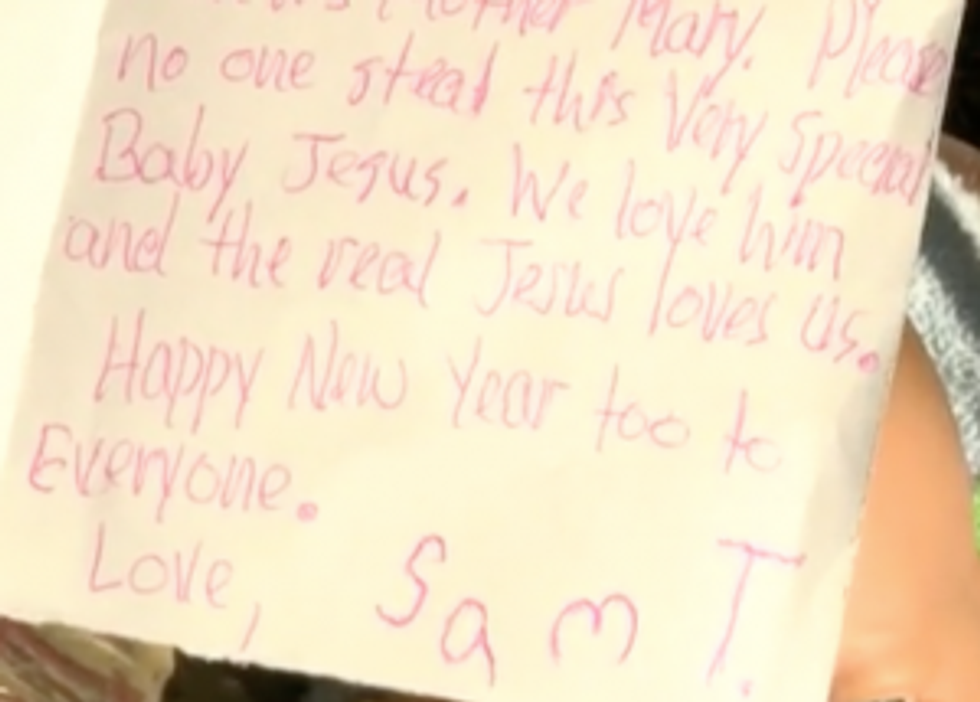 Mother Mary. Please
no one steal this Very Special
Baby Jesus. We love him
and the real Jesus loves us.
Happy New Year too to
Everyone.
Love, Sam T.